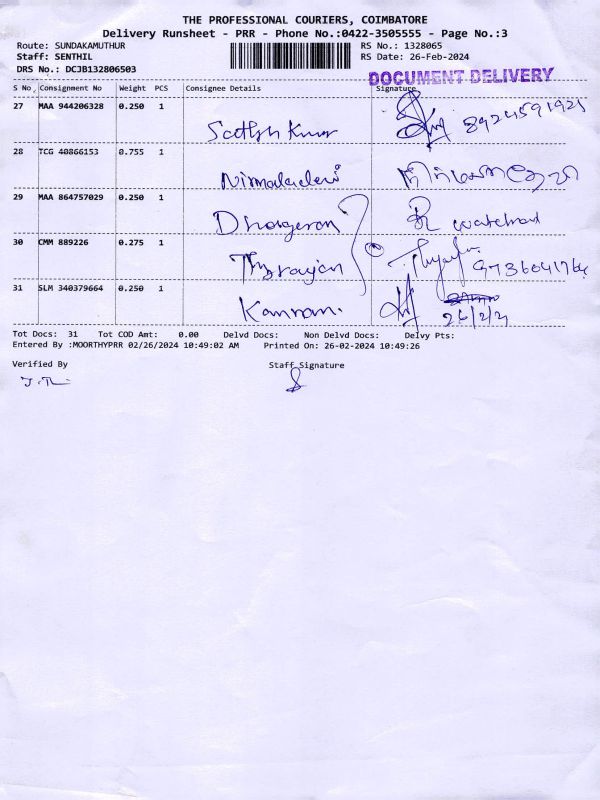 THE PROFESSIONAL COURIERS, COIMBATORE
Delivery Runsheet - PRR - Phone No.:0422-3505555 - Page No.:3
Route: SUNDAKAMUTHUR RS No.: 1328065
Staff: SENTHIL RS Date: 26-Feb-2024
DRS No.: DCJB132806503
DOCUMENT DELIVERY
S No Consignment No Weight PCS Consignee Details Signature
27 MAA 944206328 0.250 1
Sathish Kumar
28 TCG 40866153 0.755 1
Nirmaladevi
29 MAA 864757029 0.250 1
30 CMM 889226 0.275 1
31 SLM 340379664 0.250 1
Kannan.
Tot Docs: 31 Tot COD Amt: 0.00 Delvd Docs: Non Delvd Docs: Delvy Pts:
Entered By :MOORTHYPRR 02/26/2024 10:49:02 AM Printed On: 26-02-2024 10:49:26
Verified By Staff Signature